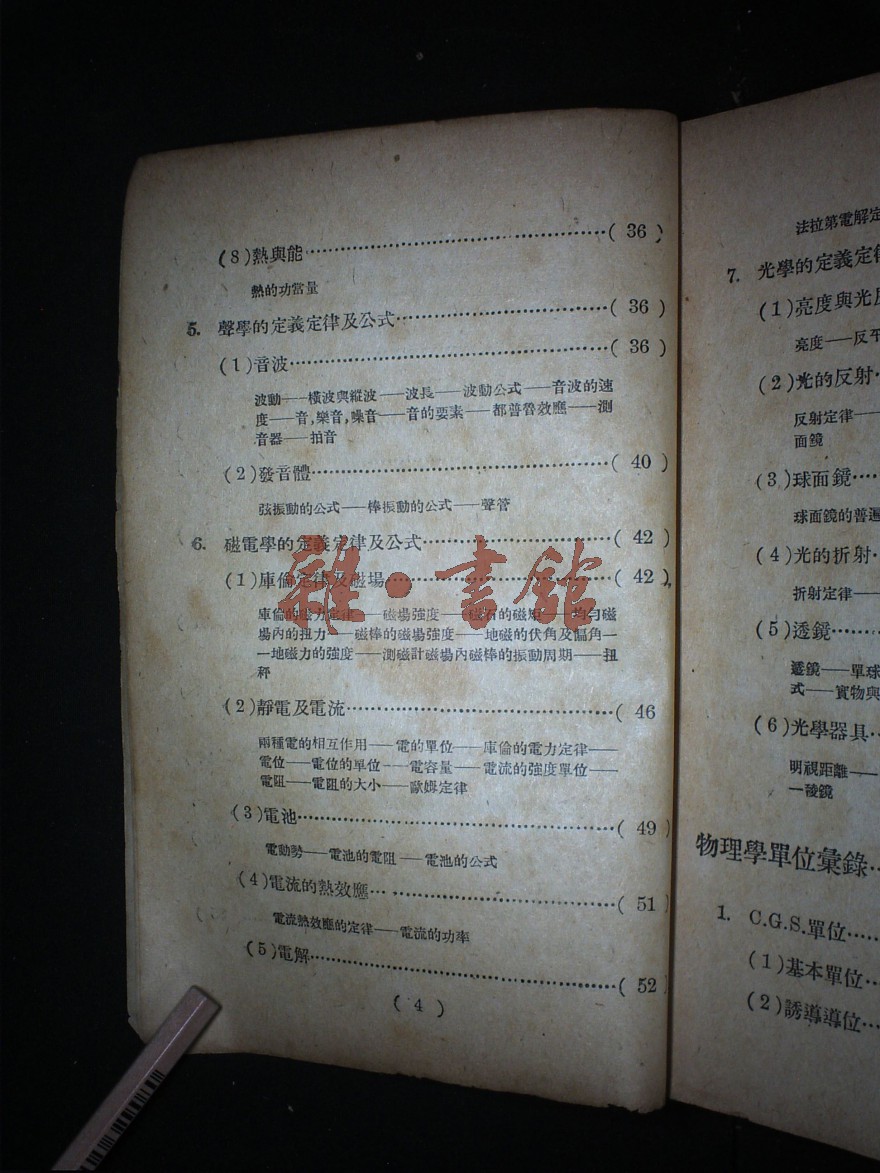 (8)熱與能……(36)
熱的功當量
5. 聲學的定義定律及公式……(36)
(1)音波……(36)
波動——橫波與縱波——波長——波動公式——音波的速
度——音,樂音,噪音——音的要素——都普魯效應——測
音器——拍音
(2)發音體……(40)
弦振動的公式——棒振動的公式——聲管
6. 磁電學的定義定律及公式……(42)
(1)庫倫定律及磁場……(42)
庫倫的磁力定律——磁場強度——磁石的磁矩——均勻磁
場內的扭力——磁棒的磁場強度——地磁的伏角及偏角—
—地磁力的強度——測磁計磁場內磁棒的振動周期——扭
秤
(2)靜電及電流……(46
兩種電的相互作用——電的單位——庫倫的電力定律——
電位——電位的單位——電容量——電流的強度單位——
電阻——電阻的大小——歐姆定律
(3)電池……(49)
電動勢——電池的電阻——電池的公式
(4)電流的熱效應……(51)
電流熱效應的定律——電流的功率
(5)電解……(52)
(4)
雜·書館
法拉第電解定
7. 光學的定義定律
(1)亮度與光
亮度——反平
(2)光的反射
反射定律——
面鏡
(3)球面鏡……
球面鏡的普遍
(4)光的折射
折射定律——
(5)透鏡……
透鏡——單球
式——實物與
(6)光學器具
明視距離——
—稜鏡
物理學單位彙錄
1. C.G.S.單位……
(1)基本單位
(2)誘導導位